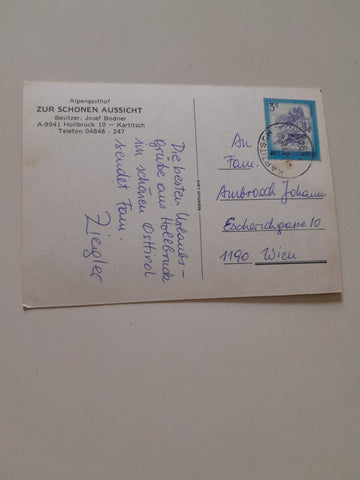 Alpengasthof
ZUR SCHÖNEN AUSSICHT
Besitzer: Josef Bodner
A-9941 Hollbruck 10 — Kartitsch
Telefon 04848 - 247
Die besten Urlaubs-
grüße aus Hollbruck
im schönen Osttirol
sendet Fam.
Ziegler
3 S
KARTITSCH
An
Fam.
Ambrosch Johann
Escherichgasse 10
1190 Wien